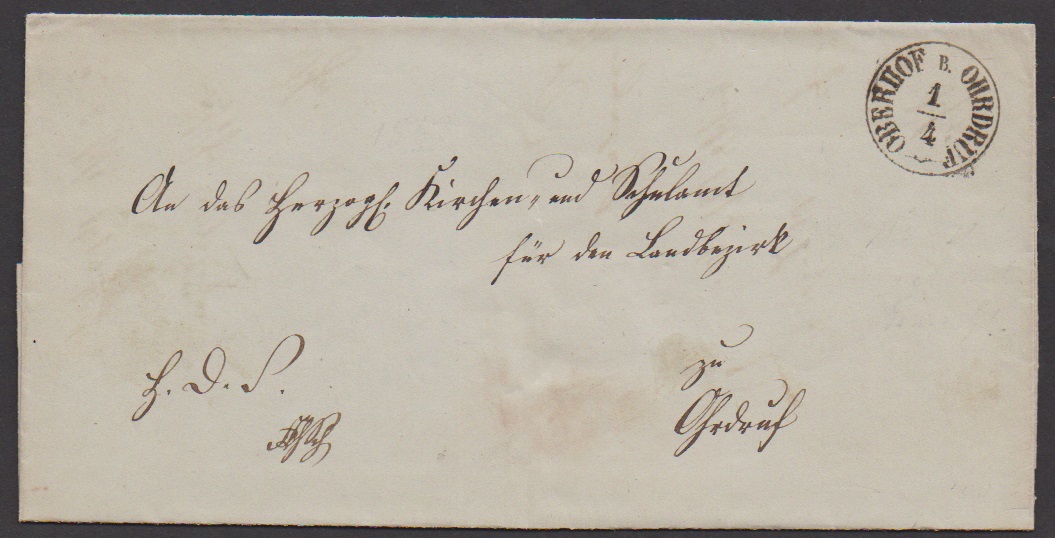 OBERHOF B. OHRDRUF
1/4
An das Herzogl. Kirchen- und Schulamt
für den Landbezirk
zu
Ohrdruf
H. D. S.